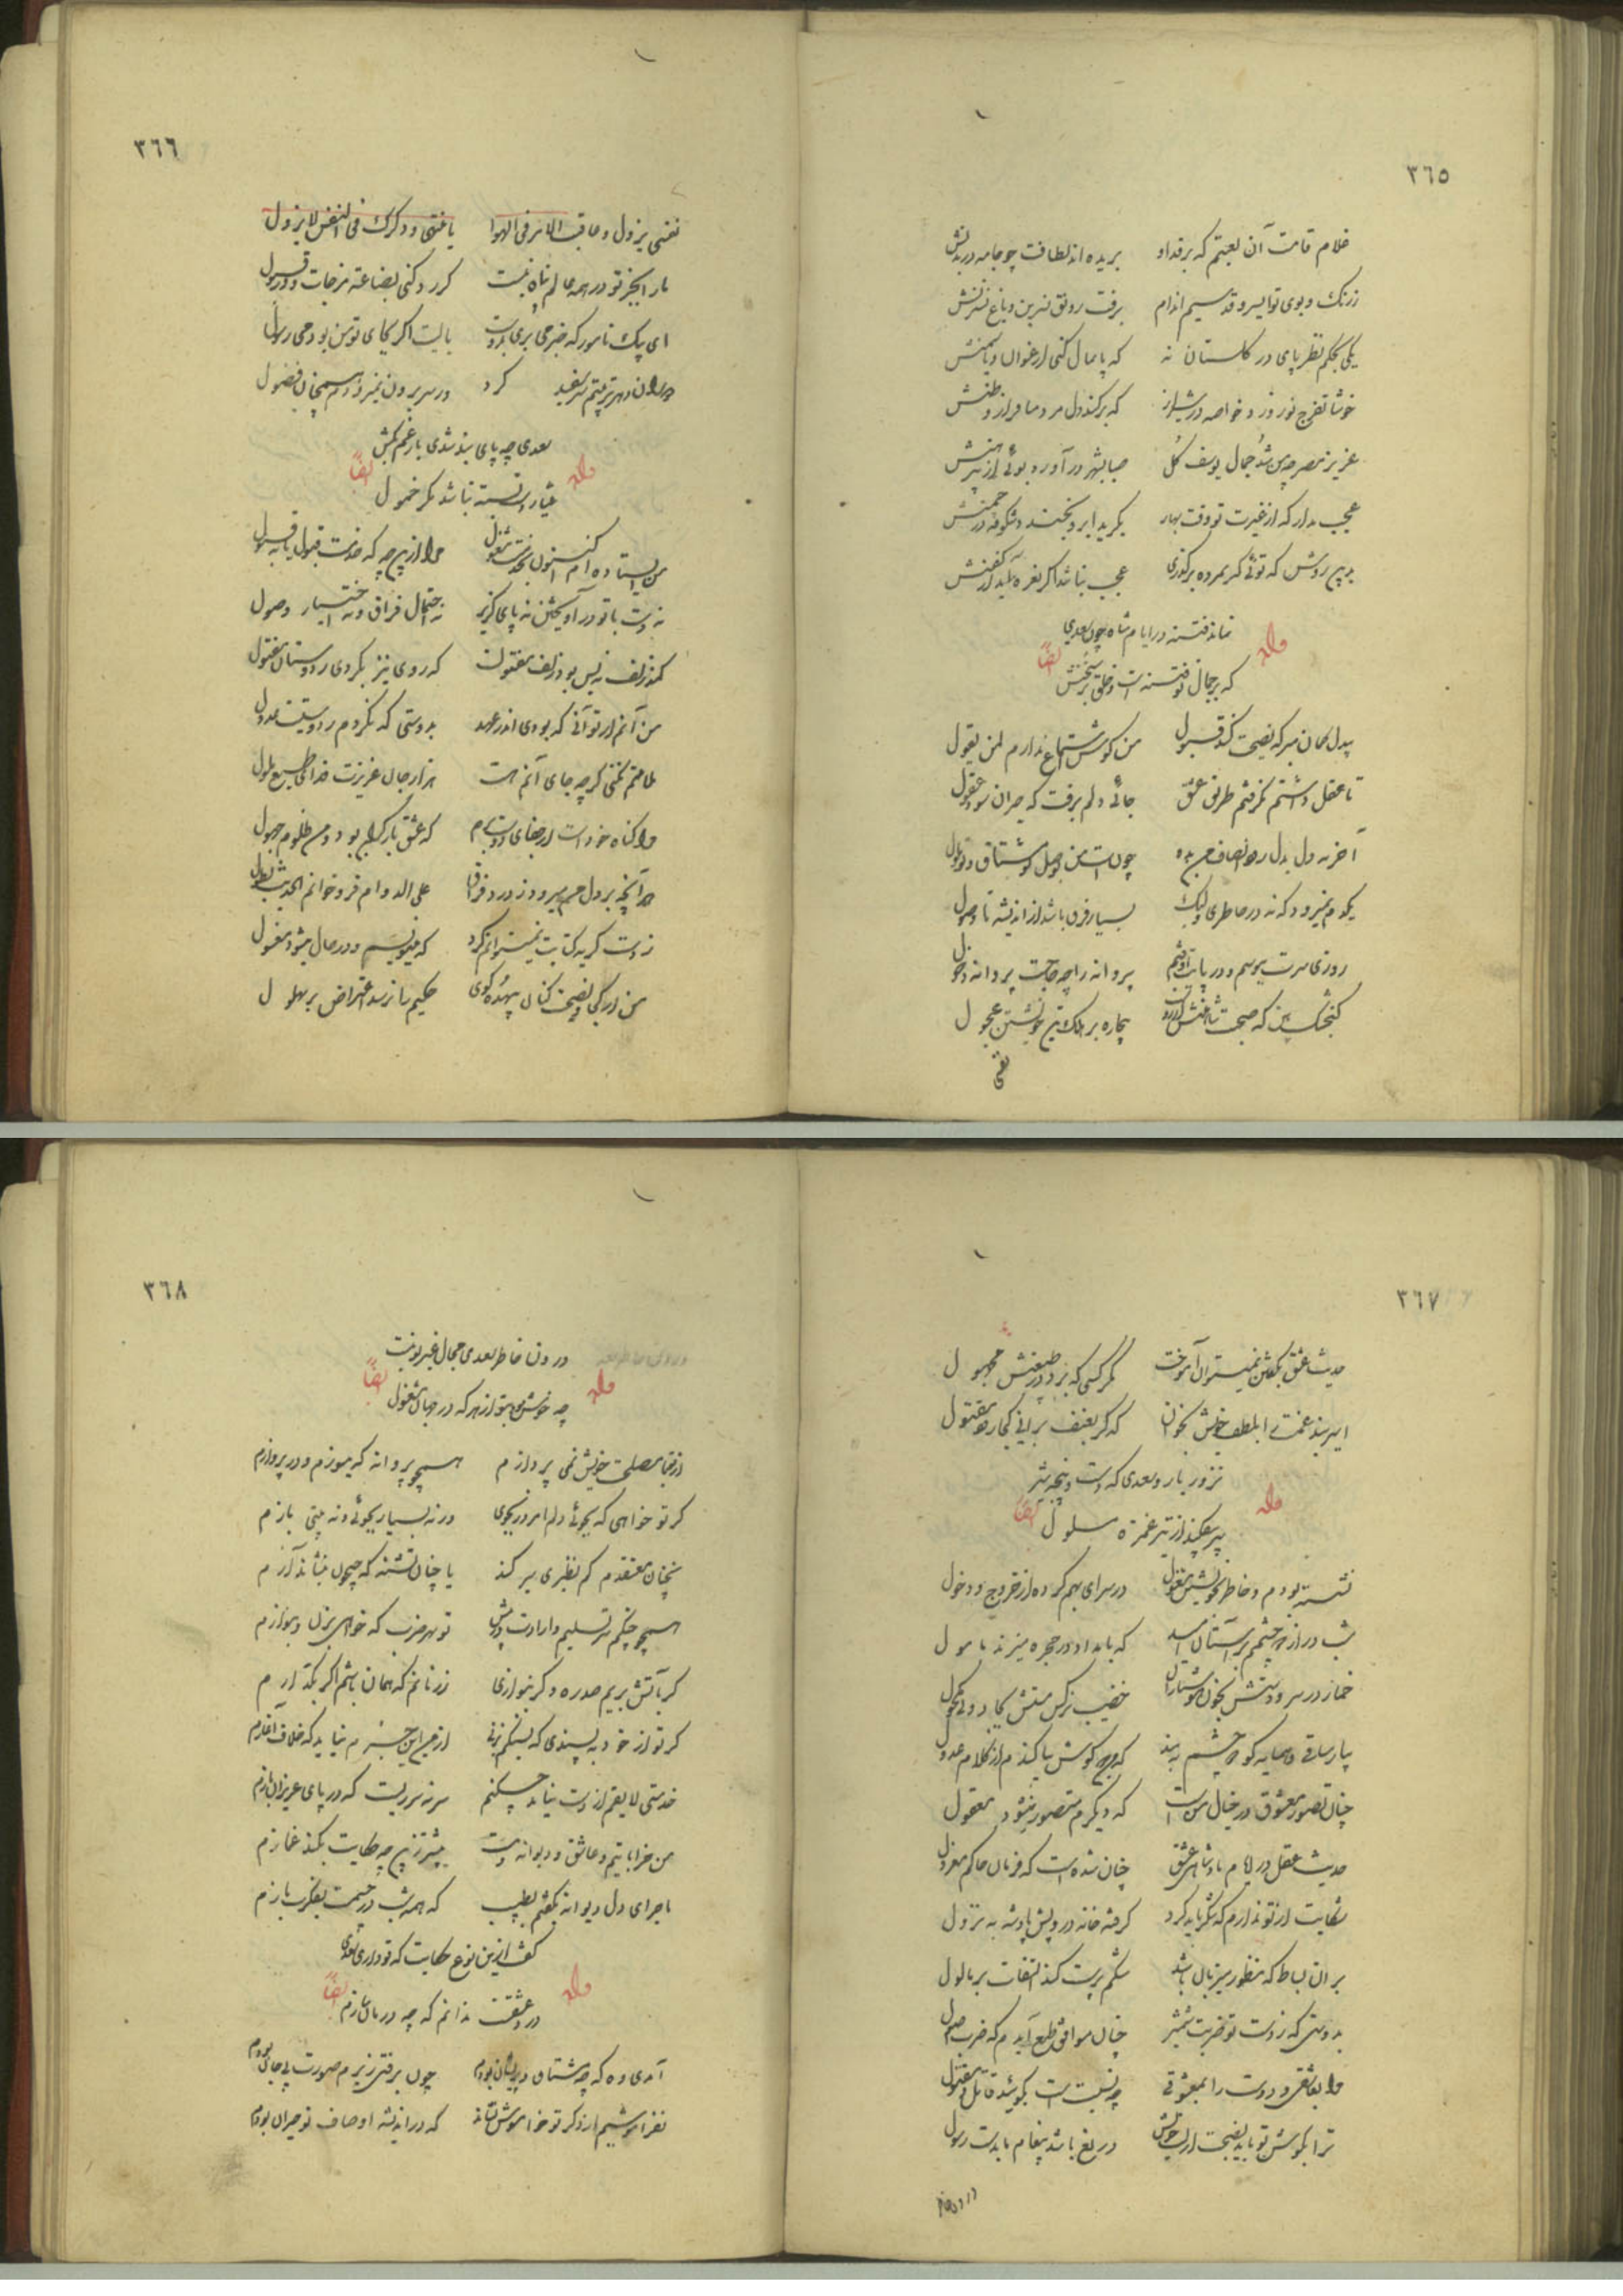 ٣٦٥
غلام قامت آن لعبتم که بر قد او بریده اند لطافت چو جامه در بدنش
ز رنک و بوی تو ای سرو قد سیم اندام برفت رونق نسرین و باغ نسترنش
یکی بحکم نظر پای در کلستان نه که پایمال کنی ارغوان و یاسمنش
خوشا تفرج نوروز خاصه در شیراز که برکند دل مرد مسافر از وطنش
عزیز مصر چمن شد جمال یوسف کل صبا بشهر در آورد بوئی از پیرهنش
عجب مدار که از غیرت تو وقت بهار بکرید ابر و بخندد شکوفه در چمنش
بدین روش که توئی کر بمرده برکذری عجب نباشد اکر نعره آید از کفنش
نماند فتنه در ایام شاه جز سعدی
که بر جمال تو فتنه است و خلق بر سخنش
وله ایضاً
بیدل کمان مبر که نصیحت کند قبول من کوش استماع ندارم لمن یقول
تا عقل داشتم نکرفتم طریق عشق جائی دلم برفت که حیران شود عقول
آخر نه دل بدل رود انصاف من بده چون است من بوصل تو مشتاق و تو ملول
یکدم نمیرود که نه در خاطری ولیک بسیار فرق باشد از اندیشه تا وصول
روزی سرت ببوسم و در پایت اوفتم پروانه را چه حاجت پروانه دخول
کنجشک بین که صحبت شاهینش آرزوست بیچاره بر هلاک تن خویشتن عجول
نفسی
٣٦٦
نفسی یزول و عاقبة الامر فی الهوا یا منتهی و ذکرک فی النفس لا یزول
ما را بجز تو در همه عالم پناه نیست کر رد کنی بضاعة مزجات ور قبول
ای پیک نامور که خبر می بری بدوست یا لیت اکر بجای تو من بودمی رسول
دوران دهر و تجربتم سر سفید کرد وز سر برون نمیرودم همچنان فضول
سعدی چو پای بند شدی بار غم بکش
عیار دست بسته نباشد مکر خمول
وله ایضاً
من ایستاده ام اینک بخدمتت مشغول مرا از این چه که خدمت قبول یا نه قبول
نه دست با تو در آویختن نه پای کریز نه احتمال فراق و نه اختیار وصول
کمند زلف نه بس بود زلف مفتولت که روی نیز بکردی ز دوستان مفتول
من آنم ار تو نه آنی که بودی اندر عهد بدوستی که نکردم ز دوستیت عدول
ملامتت نکنم کرچه جای آنم هست هزار جان عزیزت فدای طبع ملول
مرا کناه خود است ار جفای دوست برم که عشق بار کران بود و من ظلوم جهول
هر آنچه بر دل من میرود ز درد فراق علی الدوام فرو خوانم الحدیث یطول
ز دست کریه کتابت نمیتوانم کرد که مینویسم و در حال میشود مغسول
من از کجا و نصیحت کنان بیهده کوی حکیم را نرسد اعتراض بر بهلول
٣٦٧
حدیث عشق بکفتن نمیتوان آموخت مکر کسی که بود در طبیعتش مجبول
اسیر بند غمت را بلطف خویش بخوان که کر بعنف برانی کجا رود مقتول
نه زور بازوی سعدی که دست و پنجه شیر
سپر بیفکند از تیر غمزه مسلول
وله ایضاً
نشسته بودم و خاطر بخویشتن مشغول در سرای بهم کرده از خروج و دخول
شب دراز دو چشمم بر آستان امید که بامداد در حجره میزند مامول
خمار در سر و دستش بخون هوشیاران خضیب نرکس مستش بجادوی مکحول
بیار ساقی و همسایه کو دو چشم ببند که من دو کوش بیاکندم از کلام عدول
چنان تصور معشوق در خیال من است که دیکرم متصور نمیشود معقول
حدیث عقل در ایام پادشاهی عشق چنان شده است که فرمان حاکم معزول
شکایت از تو ندارم که شکر باید کرد کرفته خانه درویش پادشه به نزول
بر آن بساط که منظور میزبان باشد شکم پرست کند التفات بر ماکول
بدوستی که ز دست تو ضربت شمشیر چنان موافق طبع آیدم که ضرب اصول
مرا بعاشقی و دوست را بمعشوقی چه نسبت است بکوئید قاتل و مقتول
ترا بکوش تو باید نصیحت از لب خویش دریغ باشد پیغام ما بدست رسول
درون
٣٦٨
درون خاطر سعدی مجال غیر تو نیست
چه خوش بود بتو از هر که در جهان مشغول
وله ایضاً
از تو با مصلحت خویش نمی پردازم همچو پروانه که میسوزم و در پروازم
کر تو خواهی که بجوئی دلم امروز بجوی ورنه بسیار بجوئی و نه بینی بازم
نچنان معتقدم کم نظری سیر کند یا چنان تشنه که جیحون بنشاند آزم
همچو چنکم سر تسلیم و ارادت در پیش تو بهر ضرب که خواهی بزن و بنوازم
کر بآتش بریم صد ره و کر بنوازی زر نابم که همان باشم اکر بکدازم
کر تو از خود به پسندی که بسنکم بزنی از من این جرم نیاید که خلاف آغازم
خدمتی لایقم از دست نیاید چکنم سر نه سریست که در پای عزیزان بازم
من خراباتیم و عاشق و دیوانه و مست بیشتر زین چه حکایت بکند غمازم
ماجرای دل دیوانه بکفتم بطبیب که همه شب در چشمست بفکرت بازم
کفت از این نوع حکایت که تو داری سعدی
درد عشقست ندانم که چه درمان سازم
وله ایضاً
آمدی وه که چه مشتاق و پریشان بودم چون برفتی ز برم صورت بی جان بودم
نفراموشیم از ذکر تو خاموش نشاند که در اندیشه اوصاف تو حیران بودم